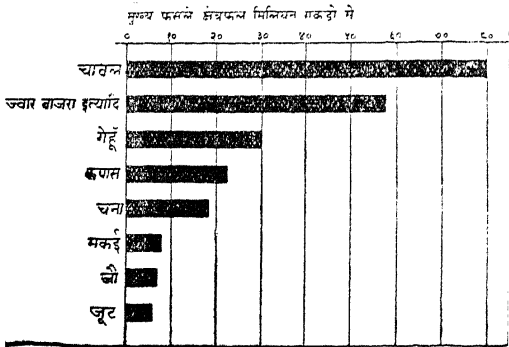 मुख्य फसले क्षेत्रफल मिलियन एकड़ो मे
० १० २० ३० ४० ५० ६० ७० ८०
चावल
ज्वार बाजरा इत्यादि
गेहूँ
कपास
चना
मकई
जौ
जूट